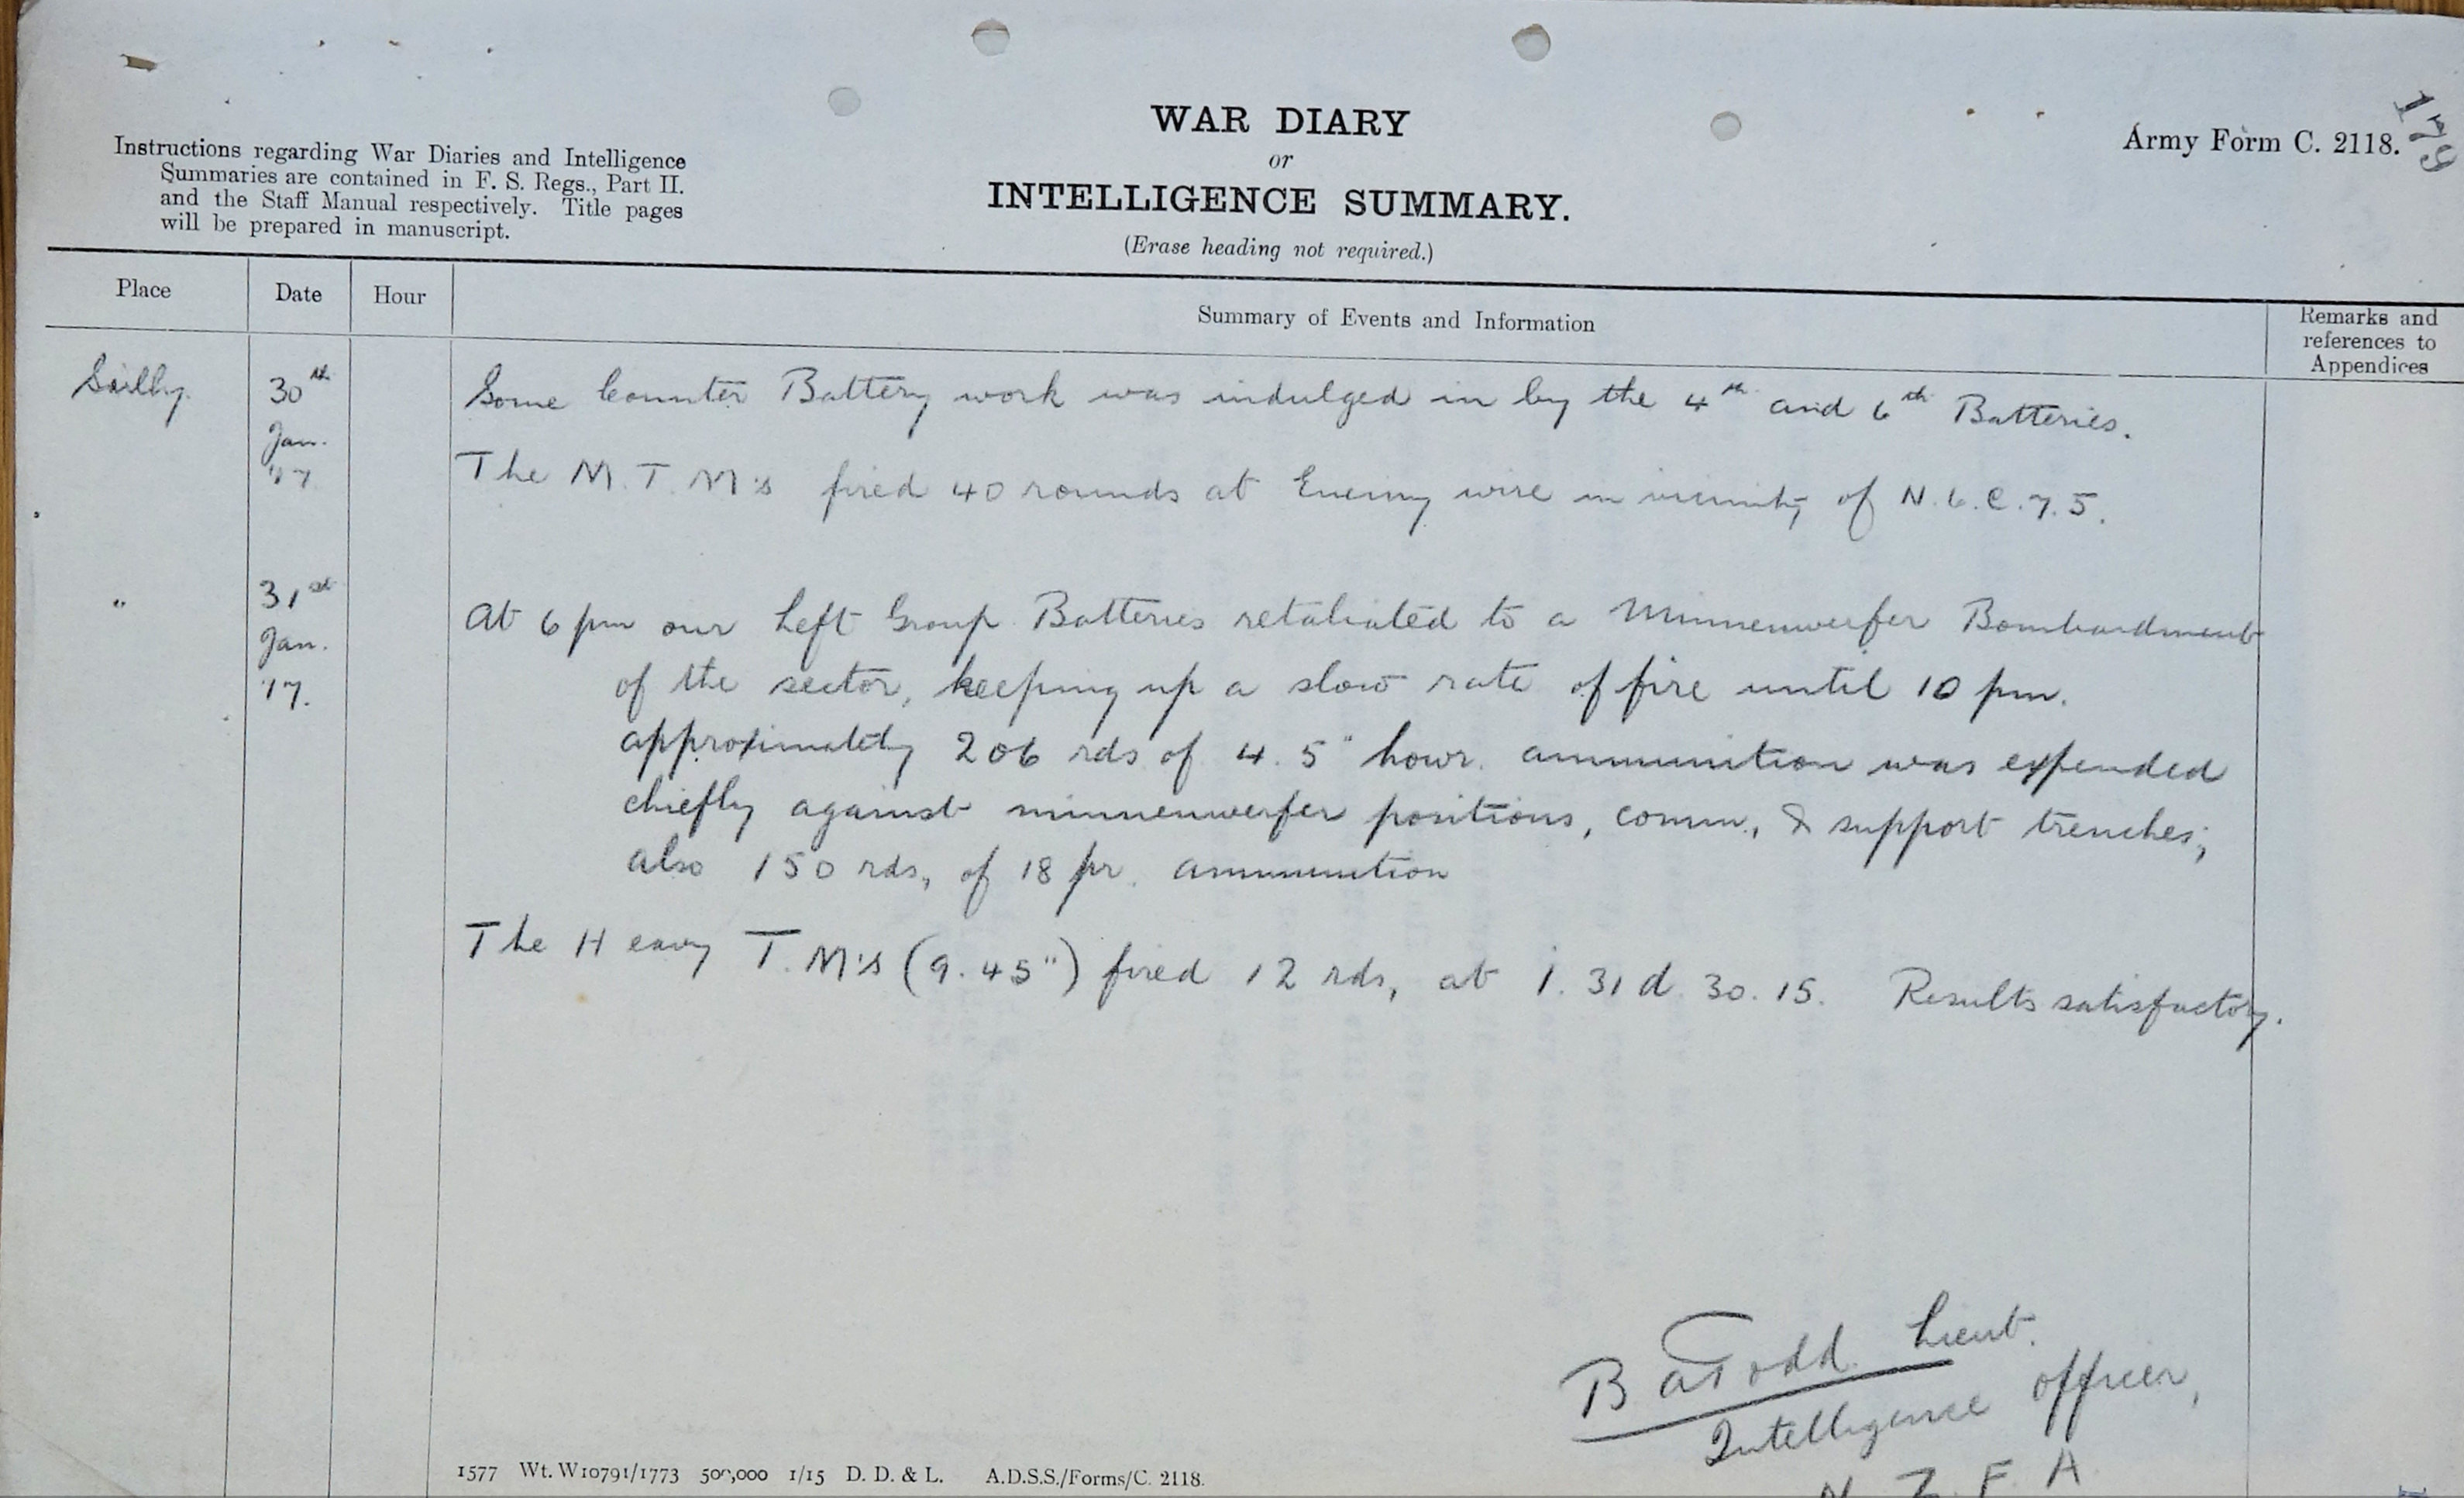 WAR DIARY
or
INTELLIGENCE SUMMARY.
(Erase heading not required.)
Army Form C. 2118.
179
Instructions regarding War Diaries and Intelligence
Summaries are contained in F. S. Regs., Part II.
and the Staff Manual respectively. Title pages
will be prepared in manuscript.
Place Date Hour Summary of Events and Information Remarks and references to Appendices
Sailly. 30th Jan. '17 Some Counter Battery work was indulged in by the 4th and 6th Batteries.
The M.T.M's fired 40 rounds at Enemy wire in vicinity of N.6.C.7.5.
" 31st Jan. '17. At 6 pm our Left Group Batteries retaliated to a Minnenwerfer Bombardment
of the sector, keeping up a slow rate of fire until 10 pm.
approximately 206 rds of 4.5" howr. ammunition was expended
chiefly against minnenwerfer positions, comm., & support trenches;
also 150 rds, of 18 pr. ammunition
The Heavy T.M's (9.45") fired 12 rds, at I.31d.30.15. Results satisfactory.
B A Todd Lieut.
Intelligence Officer,
N Z F A
1577 Wt. W10791/1773 500,000 1/15 D. D. & L. A.D.S.S./Forms/C. 2118.